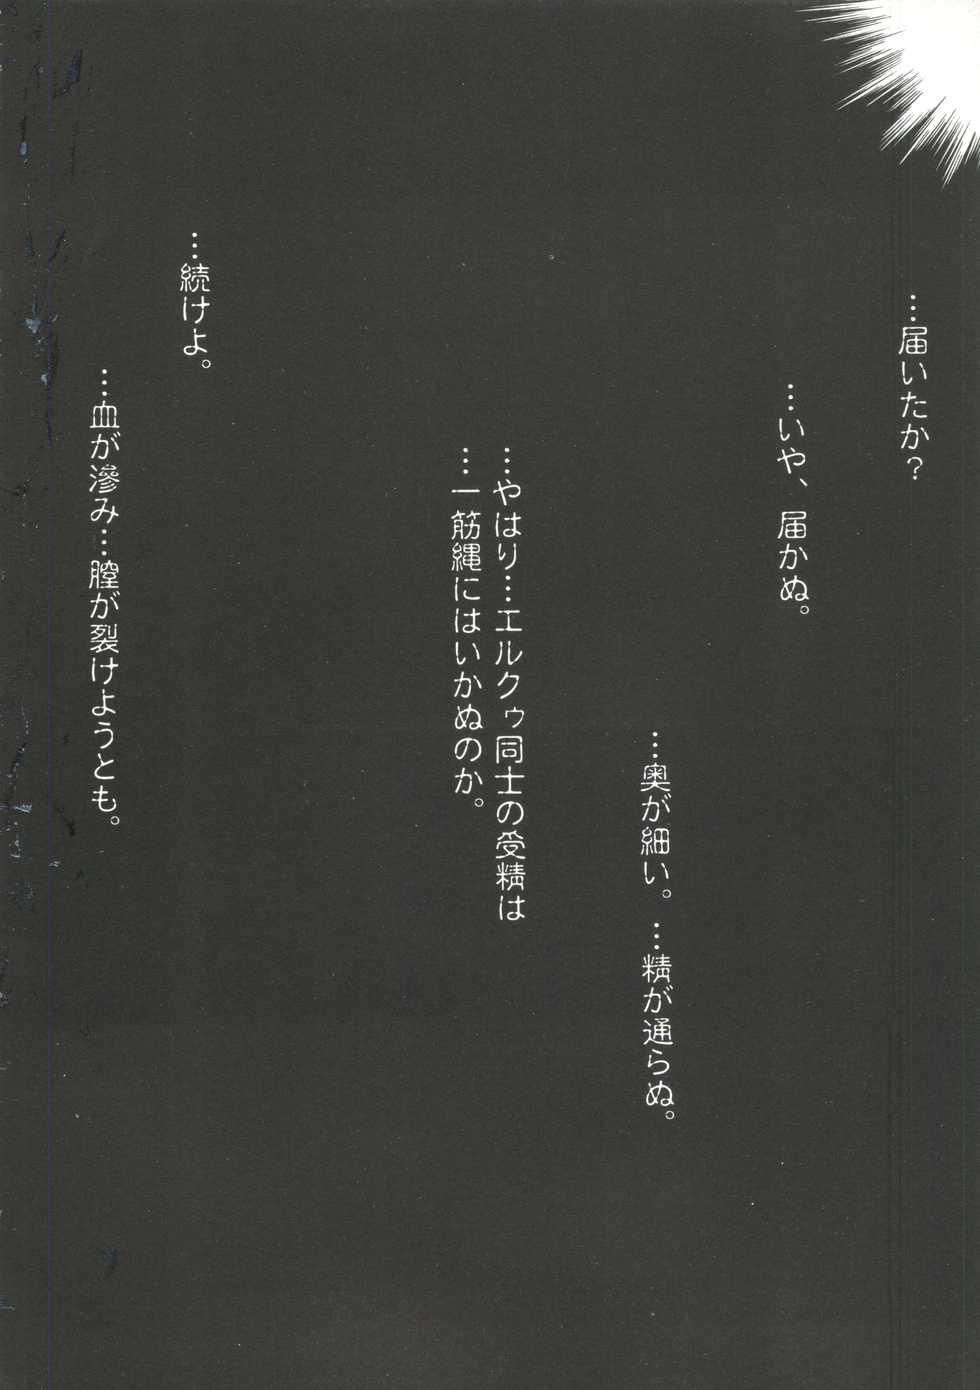 …届いたか？
…いや、届かぬ。
…奥が細い。…精が通らぬ。
…やはり…エルクゥ同士の受精は
…一筋縄にはいかぬのか。
…続けよ。
…血が滲み…膣が裂けようとも。